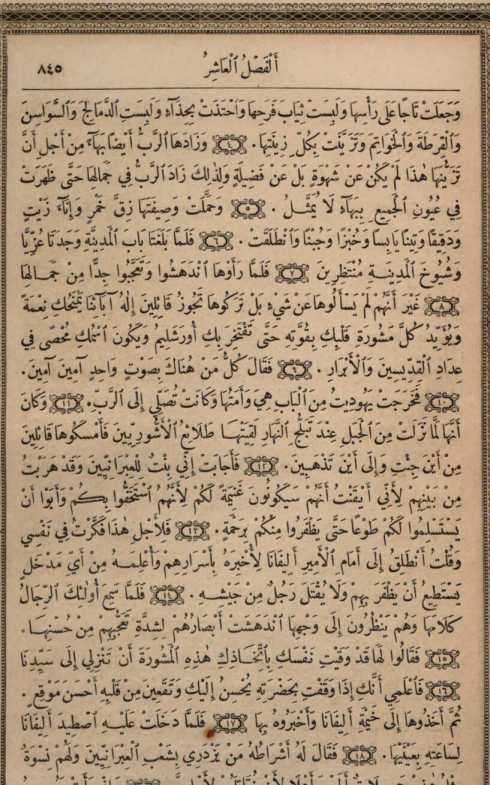 أَلْفَصْلُ ٱلْعَاشِرُ
٨٤٥
وَجَعَلَتْ تَاجًا عَلَى رَأْسِهَا وَلَبِسَتْ ثِيَابَ فَرَحِهَا وَٱحْتَذَتْ بِحِذَآءٍ وَلَبِسَتِ ٱلدَّمَالِجَ وَٱلسَّوَاسِنَ
وَٱلْقِرَطَةَ وَٱلْخَوَاتِمَ وَتَزَيَّنَتْ بِكُلِّ زِينَتِهَا. ٤ وَزَادَهَا ٱلرَّبُّ أَيْضًا بَهَآءً مِنْ أَجْلِ أَنَّ
تَزَيُّنَهَا هٰذَا لَمْ يَكُنْ عَنْ شَهْوَةٍ بَلْ عَنْ فَضِيلَةٍ وَلِذٰلِكَ زَادَ ٱلرَّبُّ فِي جَمَالِهَا حَتَّى ظَهَرَتْ
فِي عُيُونِ ٱلْجَمِيعِ بِبَهَآءٍ لَا يُمَثَّلُ. ٥ وَحَمَّلَتْ وَصِيفَتَهَا زِقَّ خَمْرٍ وَإِنَآءَ زَيْتٍ
وَدَقِيقًا وَتِينًا يَابِسًا وَخُبْزًا وَجُبْنًا وَٱنْطَلَقَتْ. ٦ فَلَمَّا بَلَغَتَا بَابَ ٱلْمَدِينَةِ وَجَدَتَا عُزِّيَّا
وَشُيُوخَ ٱلْمَدِينَةِ مُنْتَظِرِينَ ٧ فَلَمَّا رَأَوْهَا ٱنْدَهَشُوا وَتَعَجَّبُوا جِدًّا مِنْ جَمَالِهَا
٨ غَيْرَ أَنَّهُمْ لَمْ يَسْأَلُوهَا عَنْ شَيْءٍ بَلْ تَرَكُوهَا تَجُوزُ قَائِلِينَ إِلٰهُ آبَآئِنَا يَمْنَحُكِ نِعْمَةً
وَيُؤَيِّدُ كُلَّ مَشُورَةِ قَلْبِكِ بِقُوَّتِهِ حَتَّى تَفْتَخِرَ بِكِ أُورَشَلِيمُ وَيَكُونَ ٱسْمُكِ مُحْصًى فِي
عِدَادِ ٱلْقِدِّيسِينَ وَٱلْأَبْرَارِ. ٩ فَقَالَ كُلُّ مَنْ هُنَاكَ بِصَوْتٍ وَاحِدٍ آمِينَ آمِينَ.
١٠ فَخَرَجَتْ يَهُودِيتُ مِنَ ٱلْبَابِ هِيَ وَأَمَتُهَا وَكَانَتْ تُصَلِّي إِلَى ٱلرَّبِّ. ١١ وَكَانَ
أَنَّهَا لَمَّا نَزَلَتْ مِنَ ٱلْجَبَلِ عِنْدَ تَبَلُّجِ ٱلنَّهَارِ لَقِيَتْهَا طَلَائِعُ ٱلْأَشُّورِيِّينَ فَأَمْسَكُوهَا قَائِلِينَ
مِنْ أَيْنَ جِئْتِ وَإِلَى أَيْنَ تَذْهَبِينَ. ١٢ فَأَجَابَتْ إِنِّي بِنْتٌ لِلْعِبْرَانِيِّينَ وَقَدْ هَرَبْتُ
مِنْ بَيْنِهِمْ لِأَنِّي أَيْقَنْتُ أَنَّهُمْ سَيَكُونُونَ غَنِيمَةً لَكُمْ لِأَنَّهُمُ ٱسْتَخَفُّوا بِكُمْ وَأَبَوْا أَنْ
يَسْتَسْلِمُوا لَكُمْ طَوْعًا حَتَّى يَظْفَرُوا مِنْكُمْ بِرَحْمَةٍ. ١٣ فَلِأَجْلِ هٰذَا فَكَّرْتُ فِي نَفْسِي
وَقُلْتُ أَنْطَلِقُ إِلَى أَمَامِ ٱلْأَمِيرِ أَلِيفَانَا لِأُخْبِرَهُ بِأَسْرَارِهِمْ وَأُعْلِمَهُ مِنْ أَيِّ مَدْخَلٍ
يَسْتَطِيعُ أَنْ يَظْفَرَ بِهِمْ وَلَا يُقْتَلَ رَجُلٌ مِنْ جَيْشِهِ. ١٤ فَلَمَّا سَمِعَ أُولٰئِكَ ٱلرِّجَالُ
كَلَامَهَا وَهُمْ يَنْظُرُونَ إِلَى وَجْهِهَا ٱنْدَهَشَتْ أَبْصَارُهُمْ لِشِدَّةِ تَعَجُّبِهِمْ مِنْ حُسْنِهَا.
١٥ فَقَالُوا لَهَا قَدْ وَقَيْتِ نَفْسَكِ بِٱتِّخَاذِكِ هٰذِهِ ٱلْمَشُورَةَ أَنْ تَنْزِلِي إِلَى سَيِّدِنَا
١٦ فَٱعْلَمِي أَنَّكِ إِذَا وَقَفْتِ بِحَضْرَتِهِ يُحْسِنُ إِلَيْكِ وَتَقَعِينَ مِنْ قَلْبِهِ أَحْسَنَ مَوْقِعٍ.
ثُمَّ أَخَذُوهَا إِلَى خَيْمَةِ أَلِيفَانَا وَأَخْبَرُوهُ بِهَا ١٧ فَلَمَّا دَخَلَتْ عَلَيْهِ ٱصْطِيدَ أَلِيفَانَا
لِسَاعَتِهِ بِعَيْنَيْهَا. ١٨ فَقَالَ لَهُ أَشْرَاطُهُ مَنْ يَزْدَرِي بِشَعْبِ ٱلْعِبْرَانِيِّينَ وَلَهُمْ نِسْوَةٌ